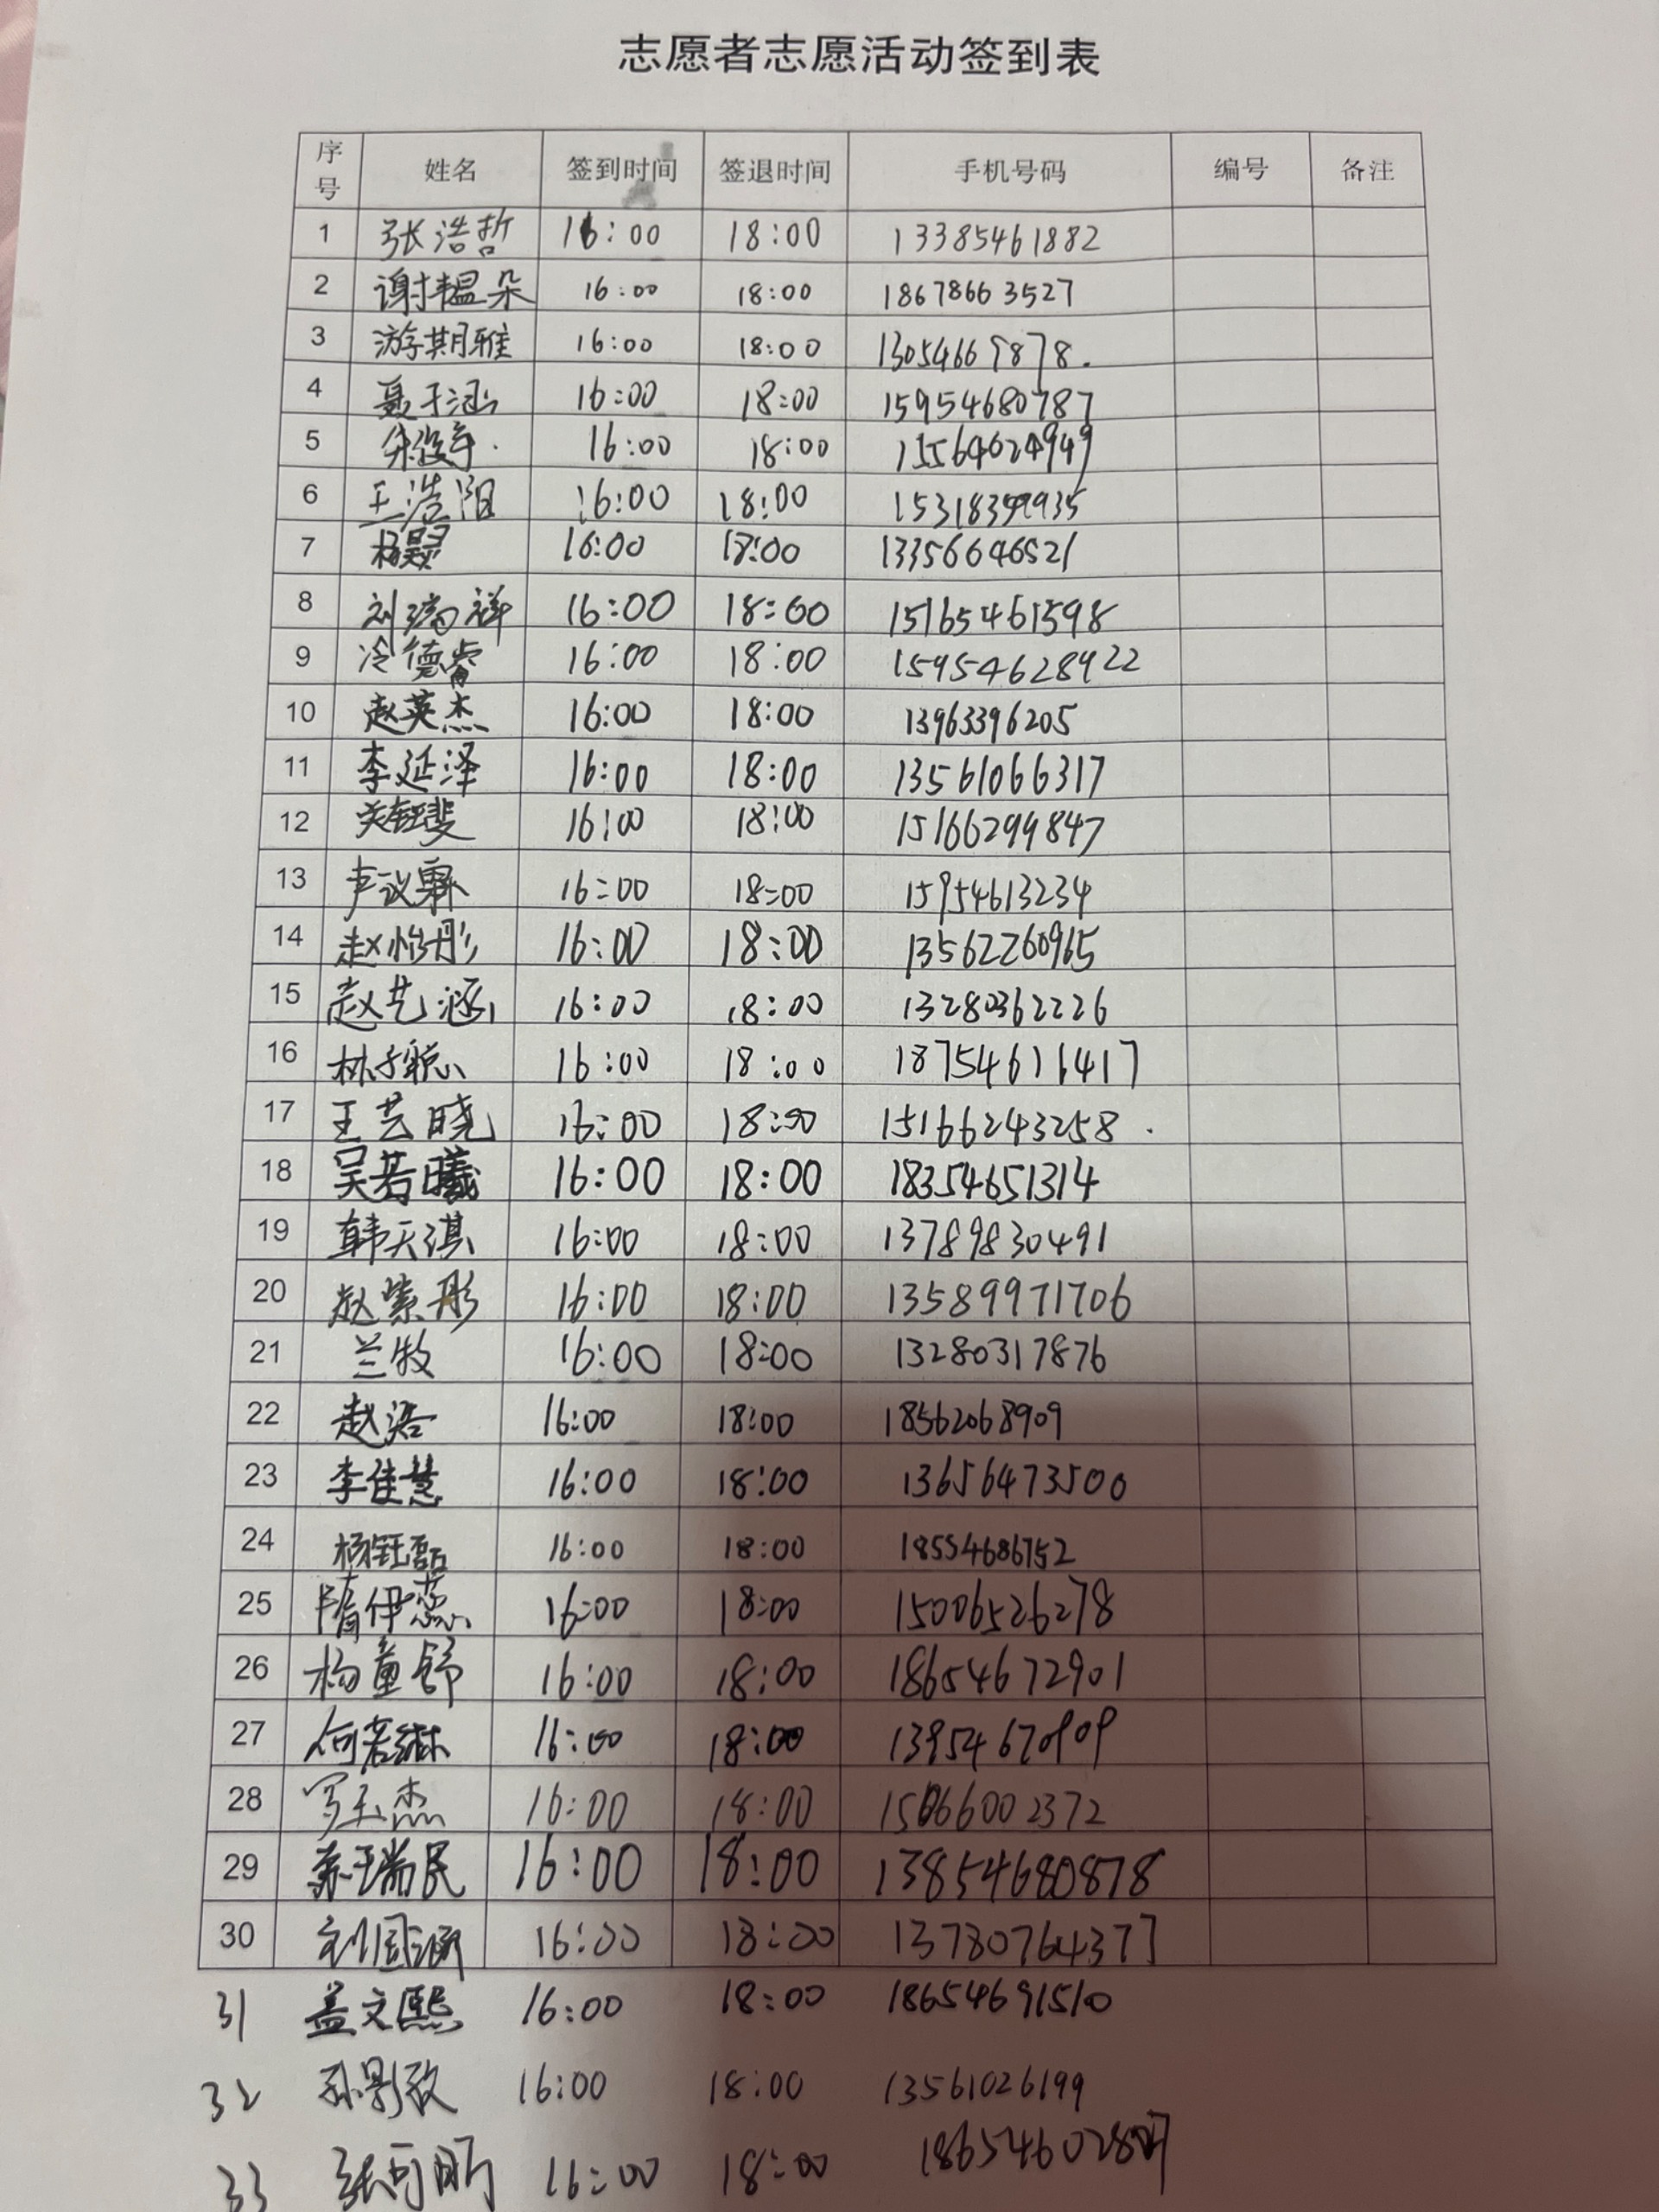 志愿者志愿活动签到表
序号 姓名 签到时间 签退时间 手机号码 编号 备注
1 张浩哲 16:00 18:00 13385461882
2 谢韫朵 16:00 18:00 18678663527
3 游期雅 16:00 18:00
4 聂于涵 16:00 18:00 15954680787
5 16:00 18:00 15564024949
6 王浩阳 16:00 18:00
7 16:00 18:00 13356646521
8 刘瑞祥 16:00 18:00 15165461598
9 冷德睿 16:00 18:00 15954628922
10 赵英杰 16:00 18:00 13963396205
11 李延泽 16:00 18:00 13561066317
12 16:00 18:00 15166299847
13 16:00 18:00 15954613234
14 赵怡彤 16:00 18:00 13562260965
15 赵艺涵 16:00 18:00 13280362226
16 林子聪 16:00 18:00 18754611417
17 王芸晓 16:00 18:00 15166243258
18 吴若曦 16:00 18:00 18354651314
19 韩天淇 16:00 18:00 13789830491
20 赵紫彤 16:00 18:00 13589971706
21 兰牧 16:00 18:00 13280317876
22 赵浩 16:00 18:00 18562068909
23 李佳慧 16:00 18:00 13656473500
24 杨钰磊 16:00 18:00 18554686752
25 隋伊蕊 16:00 18:00 15006526278
26 杨童舒 16:00 18:00 18654672901
27 何若琳 16:00 18:00 13954670909
28 罗玉杰 16:00 18:00 15066002372
29 16:00 18:00 13854680878
30 16:00 18:00 13780764377
31 盖文熙 16:00 18:00 18654691510
32 孙影孜 16:00 18:00 13561026199
33 张可昕 16:00 18:00